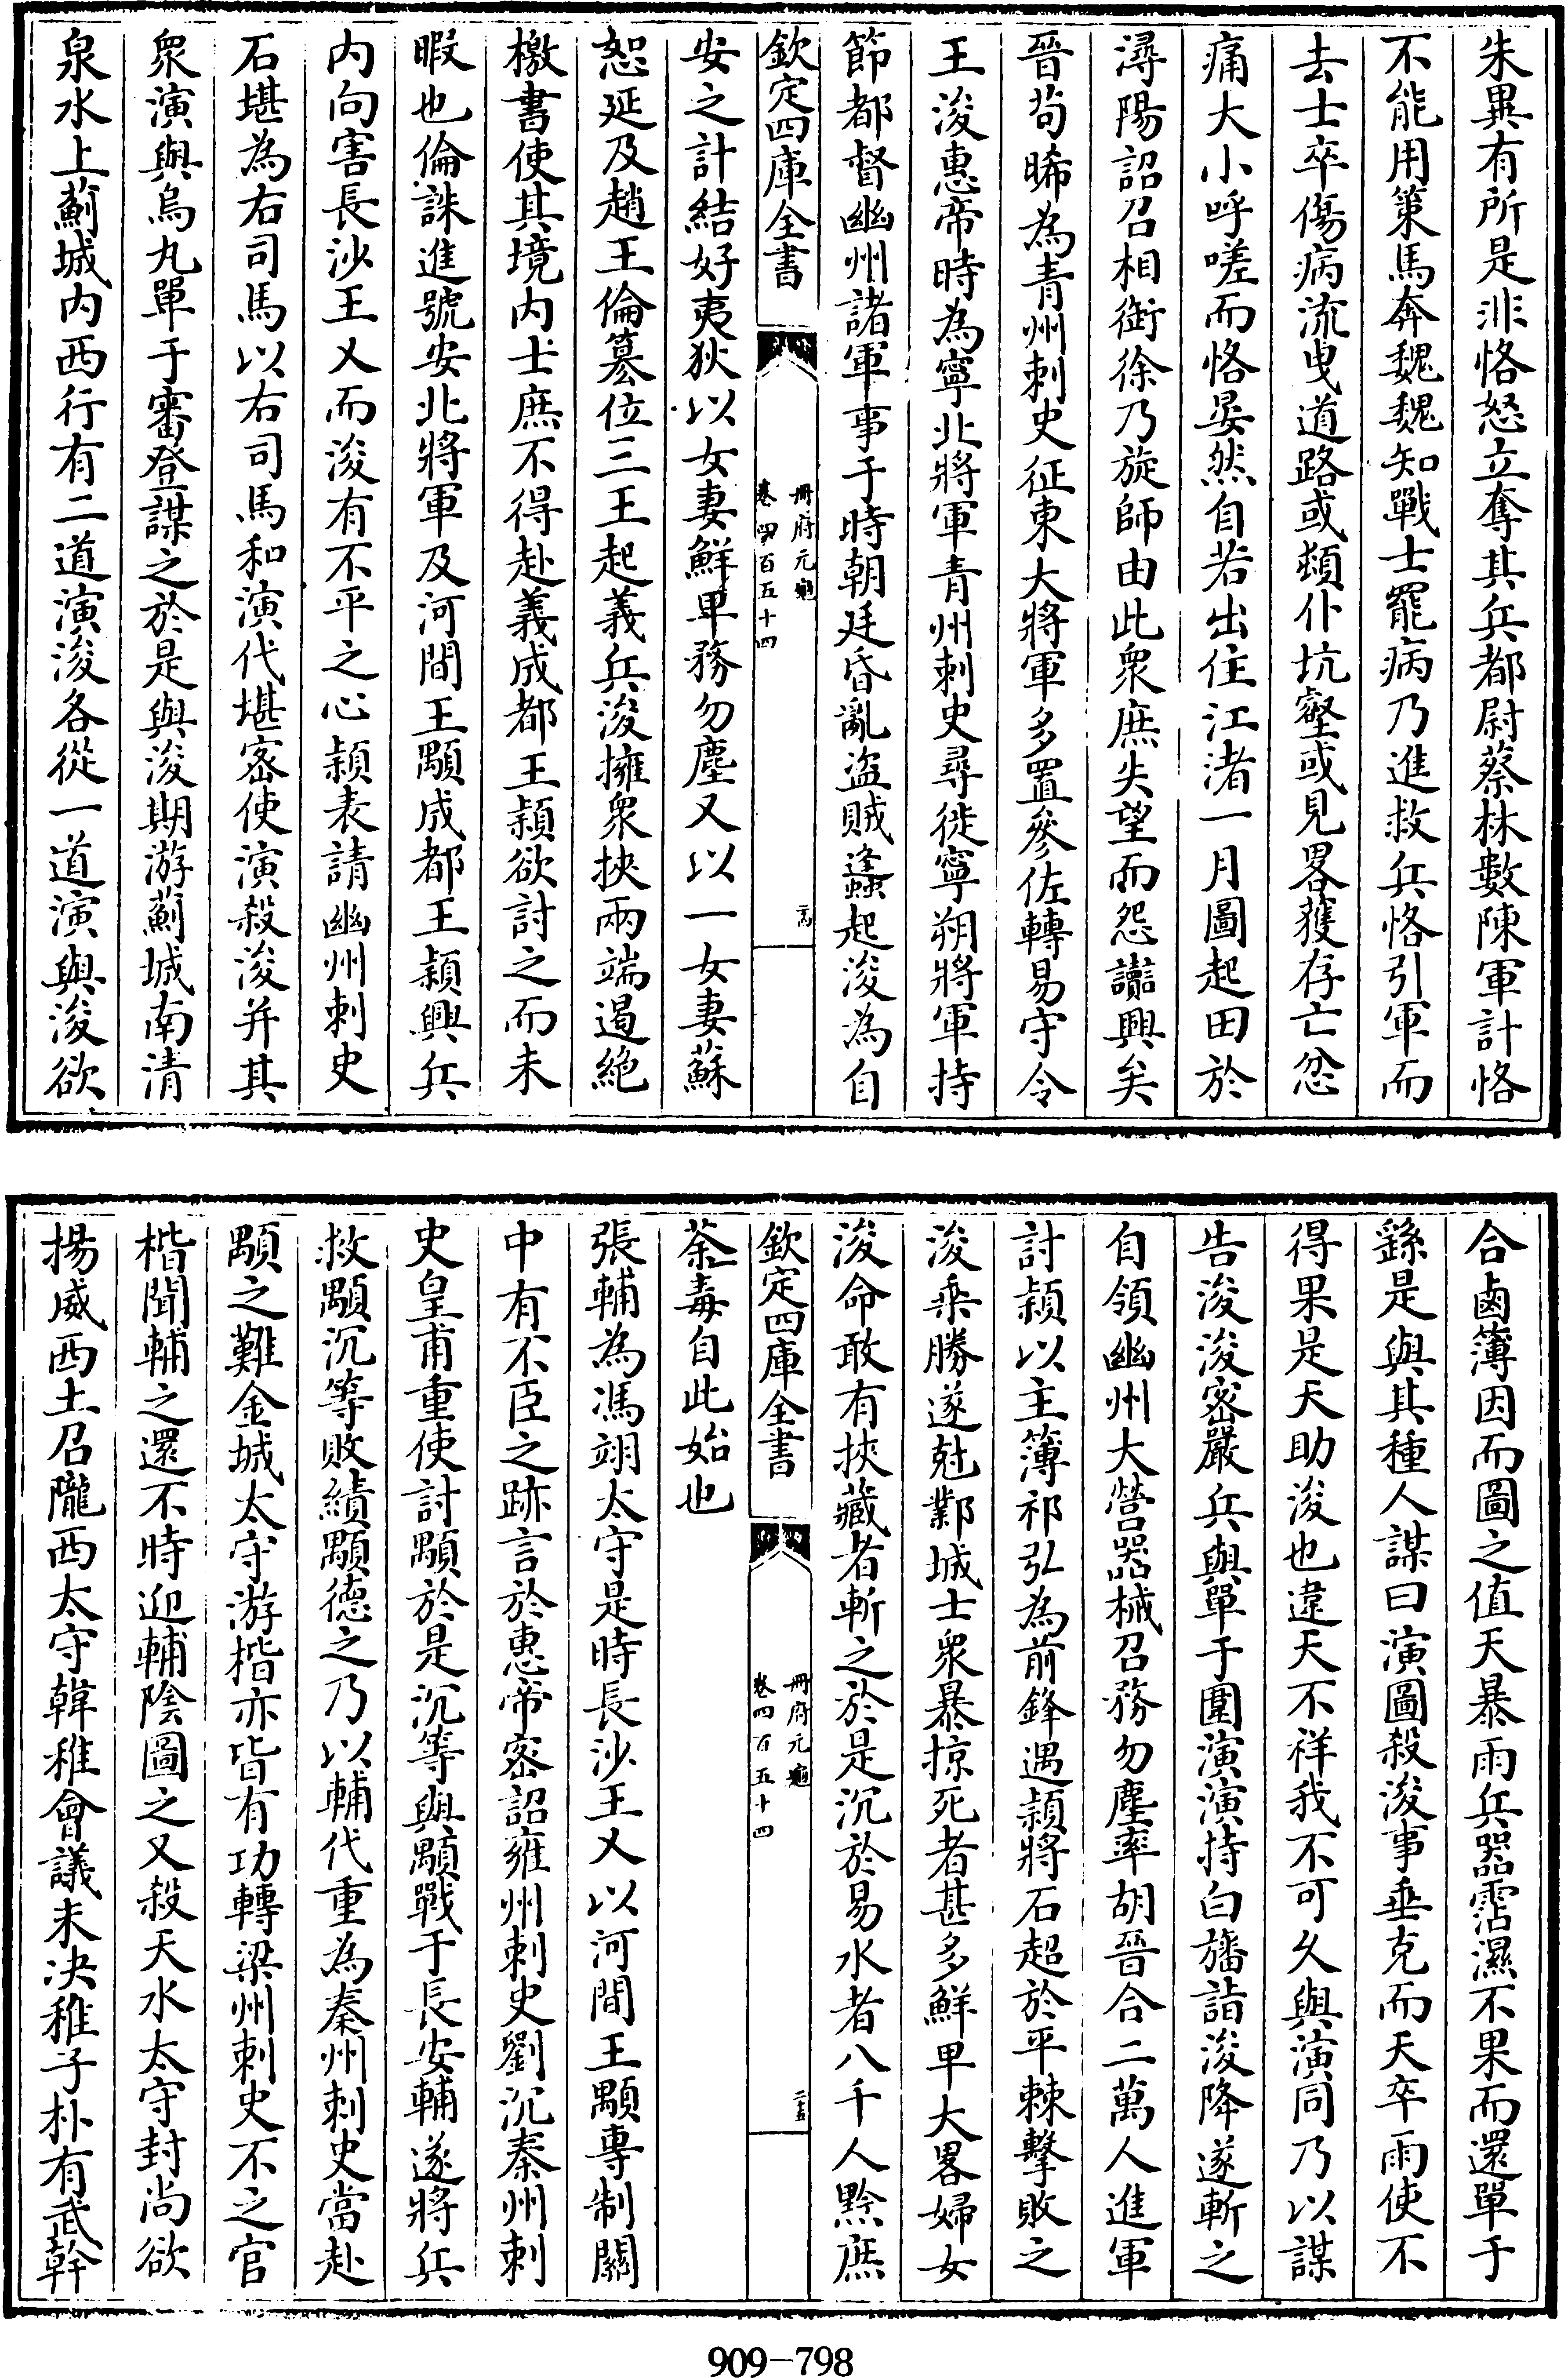 朱異有所是非恪怒立奪其兵都尉蔡林數陳軍計恪
不能用策馬奔魏魏知戰士罷病乃進救兵恪引軍而
去士卒傷病流曳道路或頓仆坑壑或見畧獲存亡忿
痛大小呼嗟而恪晏然自若出住江渚一月圖起田於
潯陽詔召相銜徐乃旋師由此衆庶失望而怨讟興矣
晉茍晞為青州刺史征東大將軍多置參佐轉易守令
王浚惠帝時為寧北將軍青州刺史尋徙寧朔將軍持
節都督幽州諸軍事于時朝廷昏亂盜賊蠭起浚為自
欽定四庫全書
冊府元龜
卷四百五十四
二十四
安之計結好夷狄以女妻鮮卑務勿塵又以一女妻蘇
恕延及趙王倫簒位三王起義兵浚擁衆挾兩端遏絕
檄書使其境内士庶不得赴義成都王頴欲討之而未
暇也倫誅進號安北將軍及河間王顒成都王頴興兵
内向害長沙王乂而浚有不平之心頴表請幽州刺史
石堪為右司馬以右司馬和演代堪密使演殺浚并其
衆演與烏丸單于審登謀之於是與浚期游薊城南清
泉水上薊城内西行有二道演浚各從一道演與浚欲
合鹵簿因而圖之值天暴雨兵器霑濕不果而還單于
繇是與其種人謀曰演圖殺浚事垂克而天卒雨使不
得果是天助浚也違天不祥我不可久與演同乃以謀
告浚浚密嚴兵與單于圍演演持白旛詣浚降遂斬之
自領幽州大營器械召務勿塵率胡晉合二萬人進軍
討頴以主簿祁弘為前鋒遇頴將石超於平棘擊敗之
浚乘勝遂尅鄴城士衆暴掠死者甚多鮮卑大畧婦女
浚命敢有挾藏者斬之於是沉於易水者八千人黔庶
欽定四庫全書
冊府元龜
卷四百五十四
二十五
荼毒自此始也
張輔為馮翊太守是時長沙王乂以河間王顒專制關
中有不臣之跡言於惠帝密詔雍州刺史劉沉秦州刺
史皇甫重使討顒於是沉等與顒戰于長安輔遂將兵
救顒沉等敗績顒德之乃以輔代重為秦州刺史當赴
顒之難金城太守游楷亦皆有功轉梁州刺史不之官
楷聞輔之還不時迎輔陰圖之又殺天水太守封尚欲
揚威西土召隴西太守韓稚會議未决稚子朴有武幹
909-798